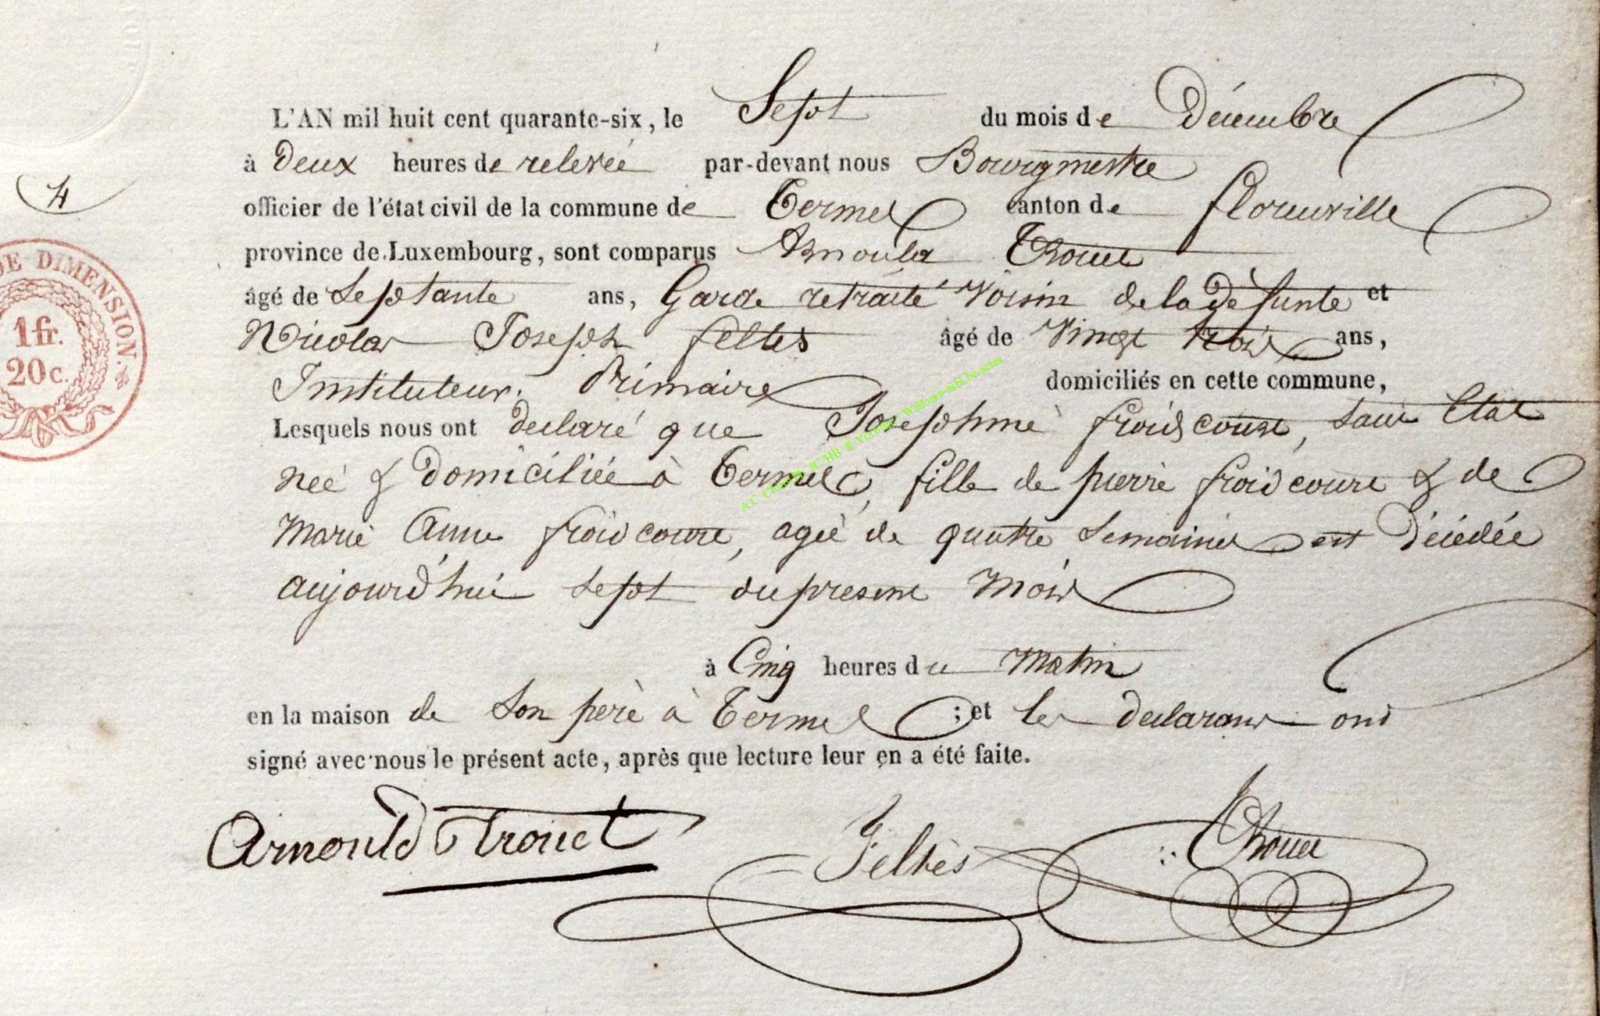 L'AN mil huit cent quarante-six, le Sept du mois de Décembre
à Deux heures de relevée par-devant nous Bourgmestre
officier de l'état civil de la commune de Termes canton de florenville
province de Luxembourg, sont comparus Arnould Trouet
âgé de Septante ans, Garde retraité Voisin de la défunte et
4
Nicolas Joseph feltes âgé de Vingt trois ans,
Instituteur Primaire domiciliés en cette commune,
DE DIMENSION.
1 fr.
20 c.
Lesquels nous ont declaré que Josephine froidcourt, sans Etat
neé & domiciliée à Termes, fille de pierre froidcourt & de
Marie Anne froidcourt, agée de quatre semaines est Décédée
aujourd'hui sept du present Mois
à Cinq heures du Matin
en la maison de son père à Termes ; et les declarans ont
signé avec nous le présent acte, après que lecture leur en a été faite.
Arnould Trouet Feltès Trouet